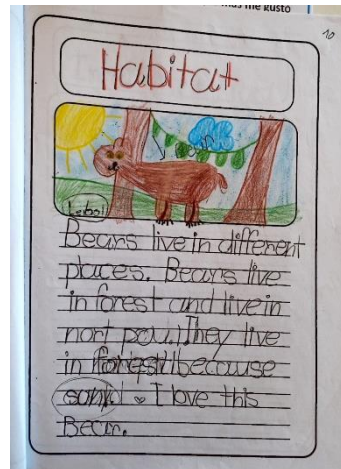 mas me gustó
10
Habitat
Label
Bears live in different
places. Bears live
in forest and live in
nort pou. They live
in because
I love this
Bear.